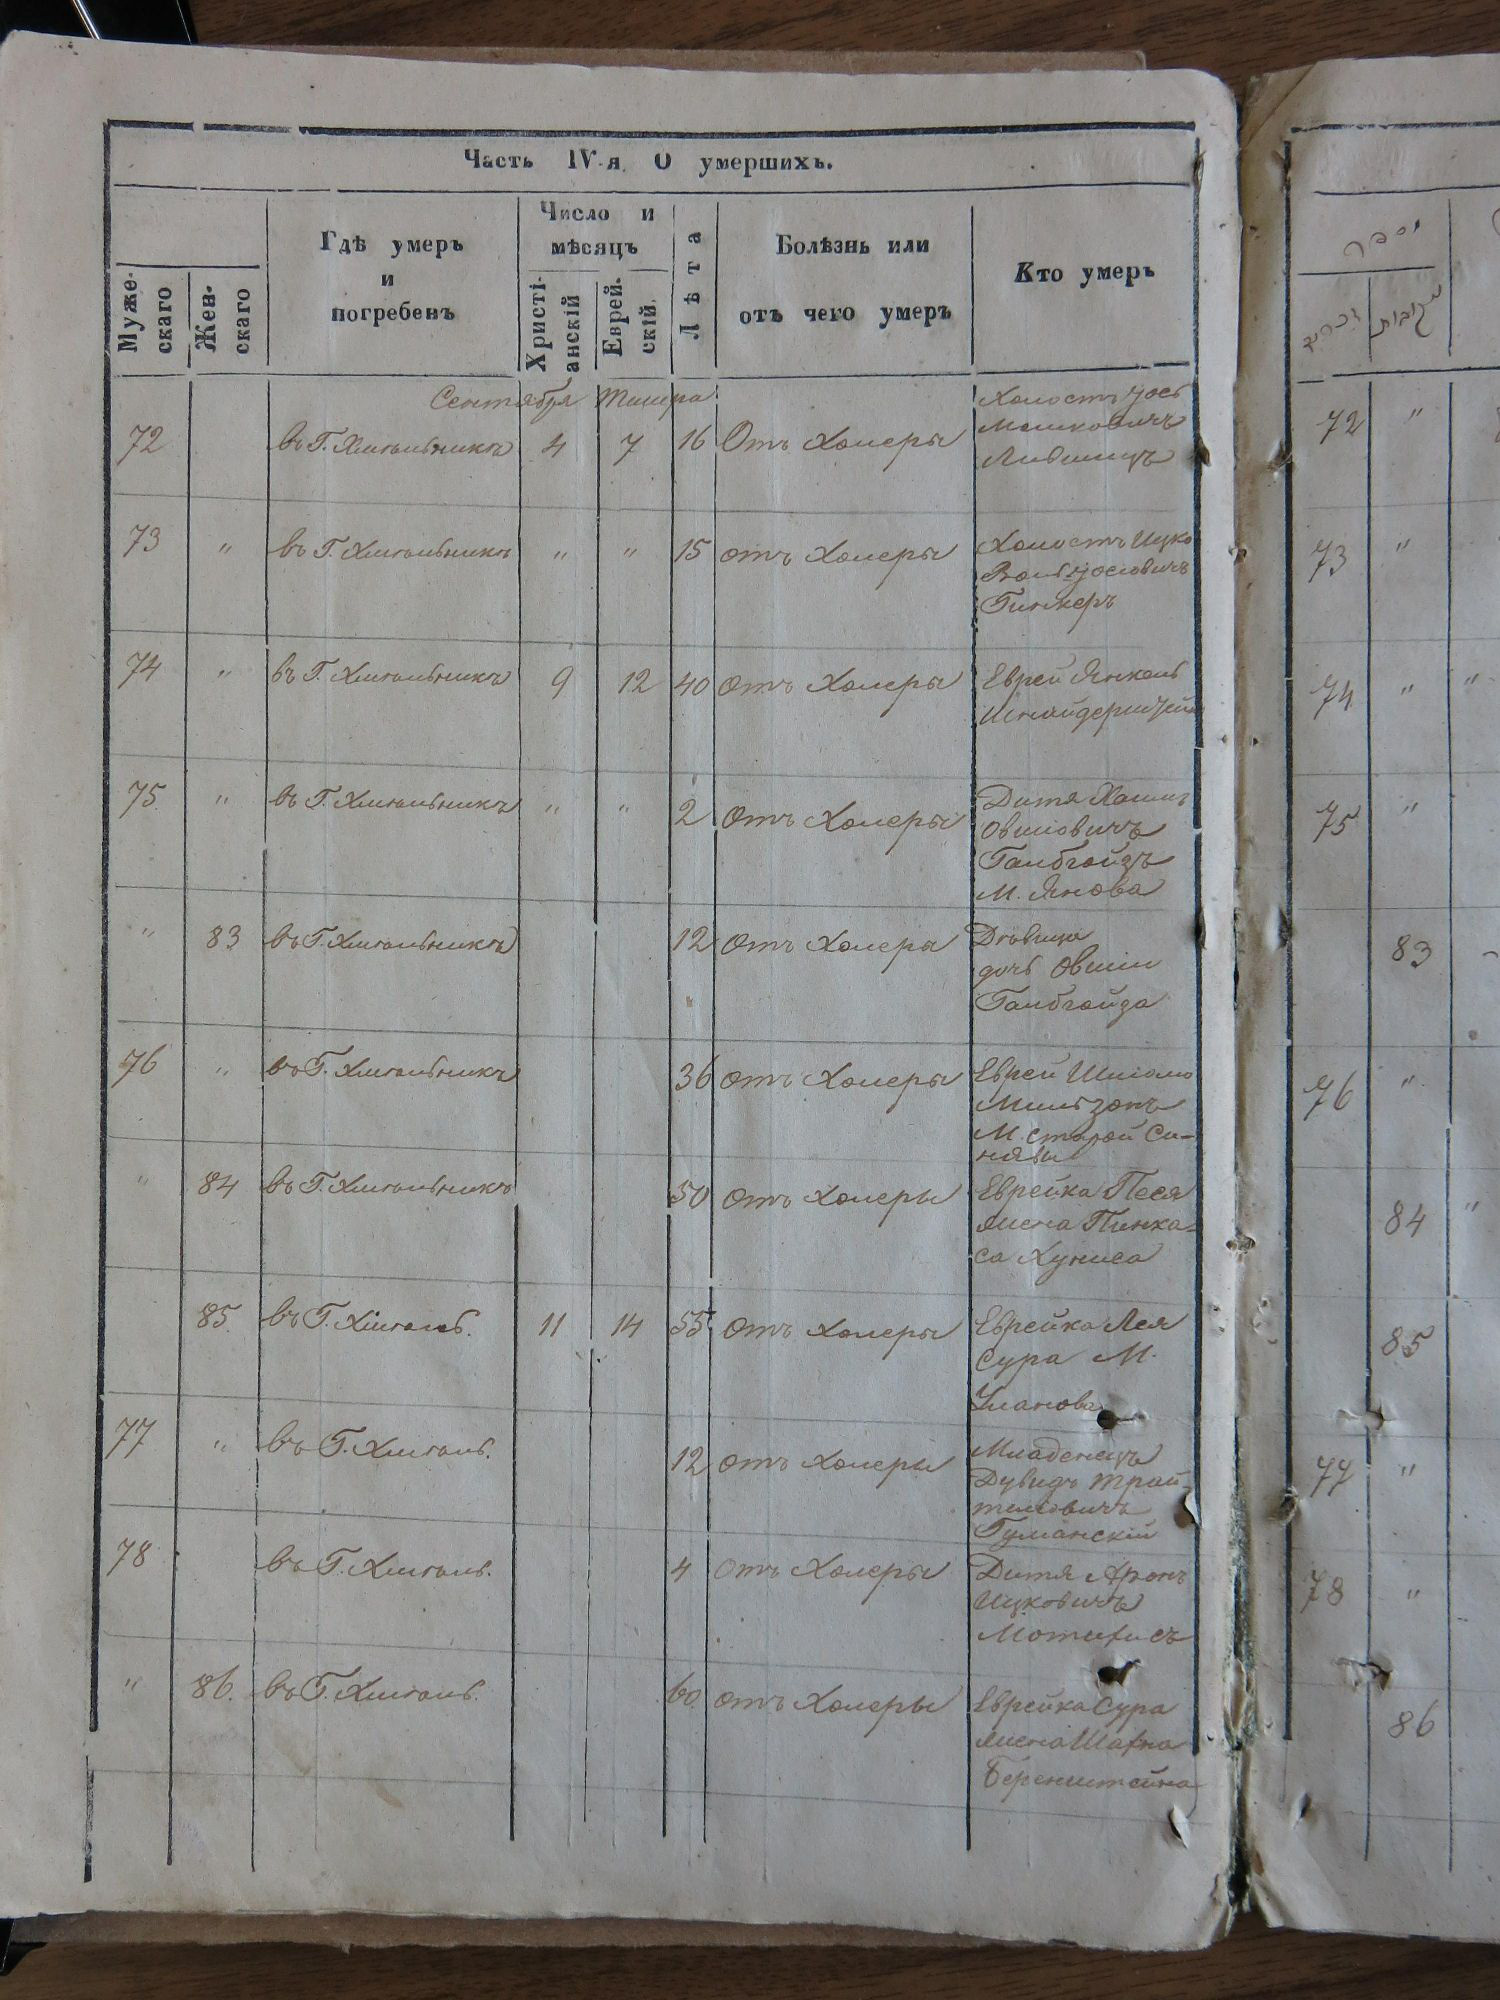 Часть IV-я, О умершихъ.
Муже-
скаго
Жен-
скаго
Гдѣ умеръ
и
погребенъ
Число и
мѣсяцъ
Христі-
анскій
Еврей-
скій
Лѣта
Болѣзнь или
отъ чего умеръ
Кто умеръ
Сентября Тишра
72 въ Г. Хмѣльникѣ 4 7 16 Отъ Холеры
Холостъ Іось
Мошковичъ
Лившицъ
73 " въ Г. Хмѣльникѣ " " 15 отъ Холеры
Холостъ Ицко
Іосіовичъ
Гинкеръ
74 " въ Г. Хмѣльникѣ 9 12 40 отъ Холеры
Еврей Янкель
75 " въ Г. Хмѣльникѣ " " 2 отъ Холеры
Дитя Хаимъ
Овшіовичъ
Галбгойзъ
М. Янова
" 83 въ Г. Хмѣльникѣ 12 отъ Холера
Дѣвица
дочь Овшіи
Галбгойза
76 " въ Г. Хмѣльникѣ 36 отъ Холеры
Еврей Шліомо
Мильзонъ
М. Старой Си-
нявы
" 84 въ Г. Хмѣльникѣ 50 отъ Холеры
Еврейка Песя
жена Пинка-
са Хуниса
85. въ Г. Хмѣльн. 11 14 55 отъ Холеры
Еврейка Лея
Сура М.
Уланова
77 " въ Г. Хмѣльн. 12 отъ Холеры
Младенецъ
Дувидъ Трай-
теліовичъ
Гуманскій
78 въ Г. Хмѣльн. 4 отъ Холеры
Дитя Аронъ
Ицковичъ
" 86. въ Г. Хмѣльн. 60 отъ Холеры
Еврейка Сура
жена
Беренштейна
מספר
נקבות
72 "
73 "
74 " "
75 "
83
76 "
84 "
85
77 "
78 "
86